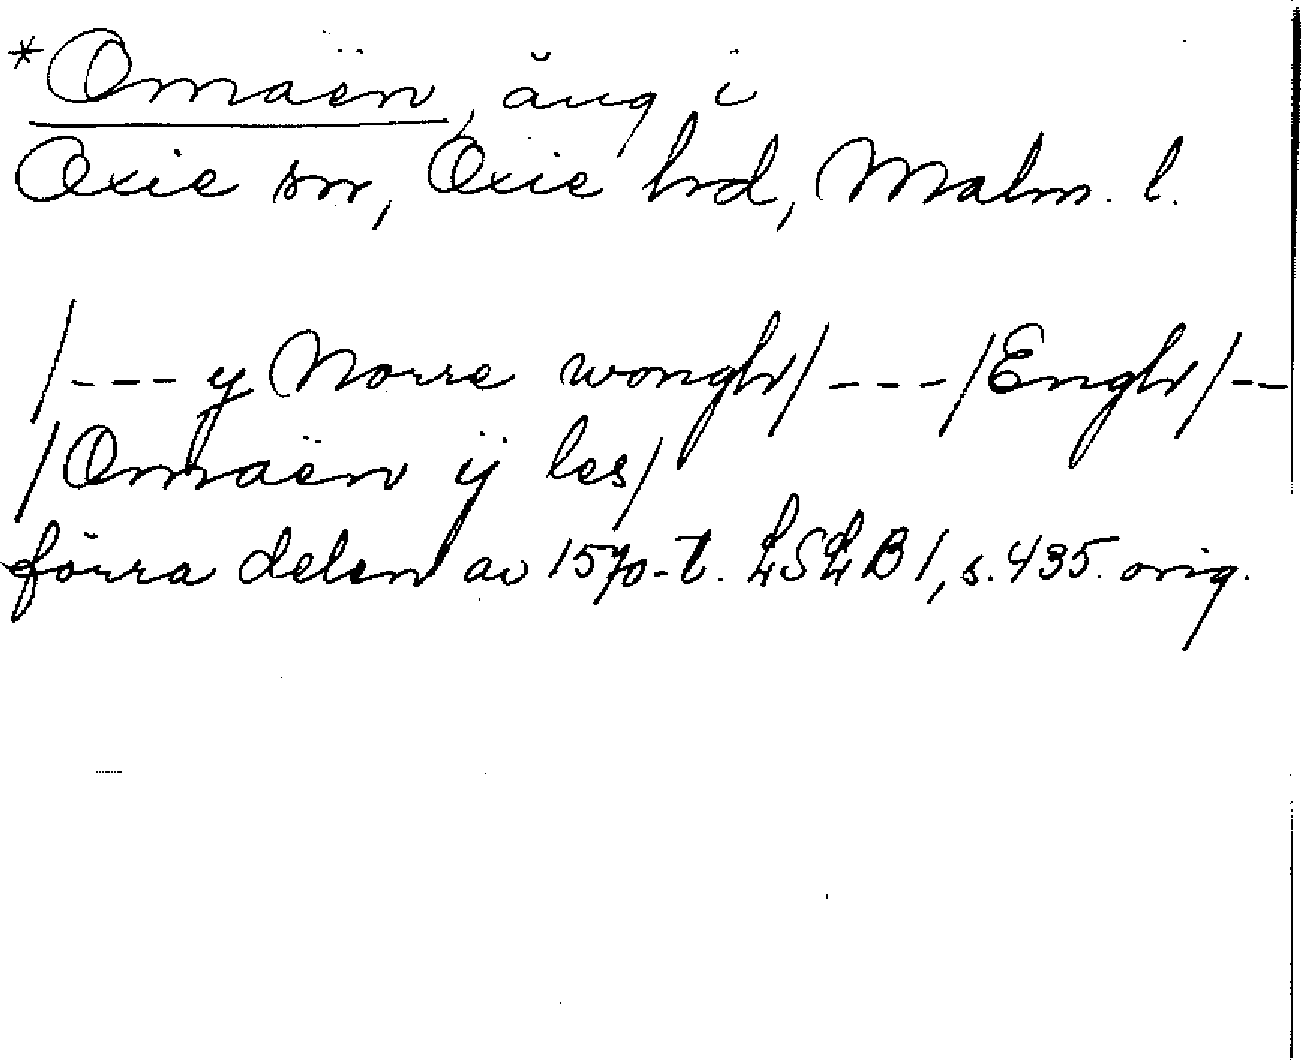 *Omäen, äng i
Oxie sn, Oxie hrd, Malm. l.
/--- y Norre wongh/ ---/Engh/--
/Omäen ÿ les/
förra delen av 1570-t. LSLB 1, s. 435. orig.